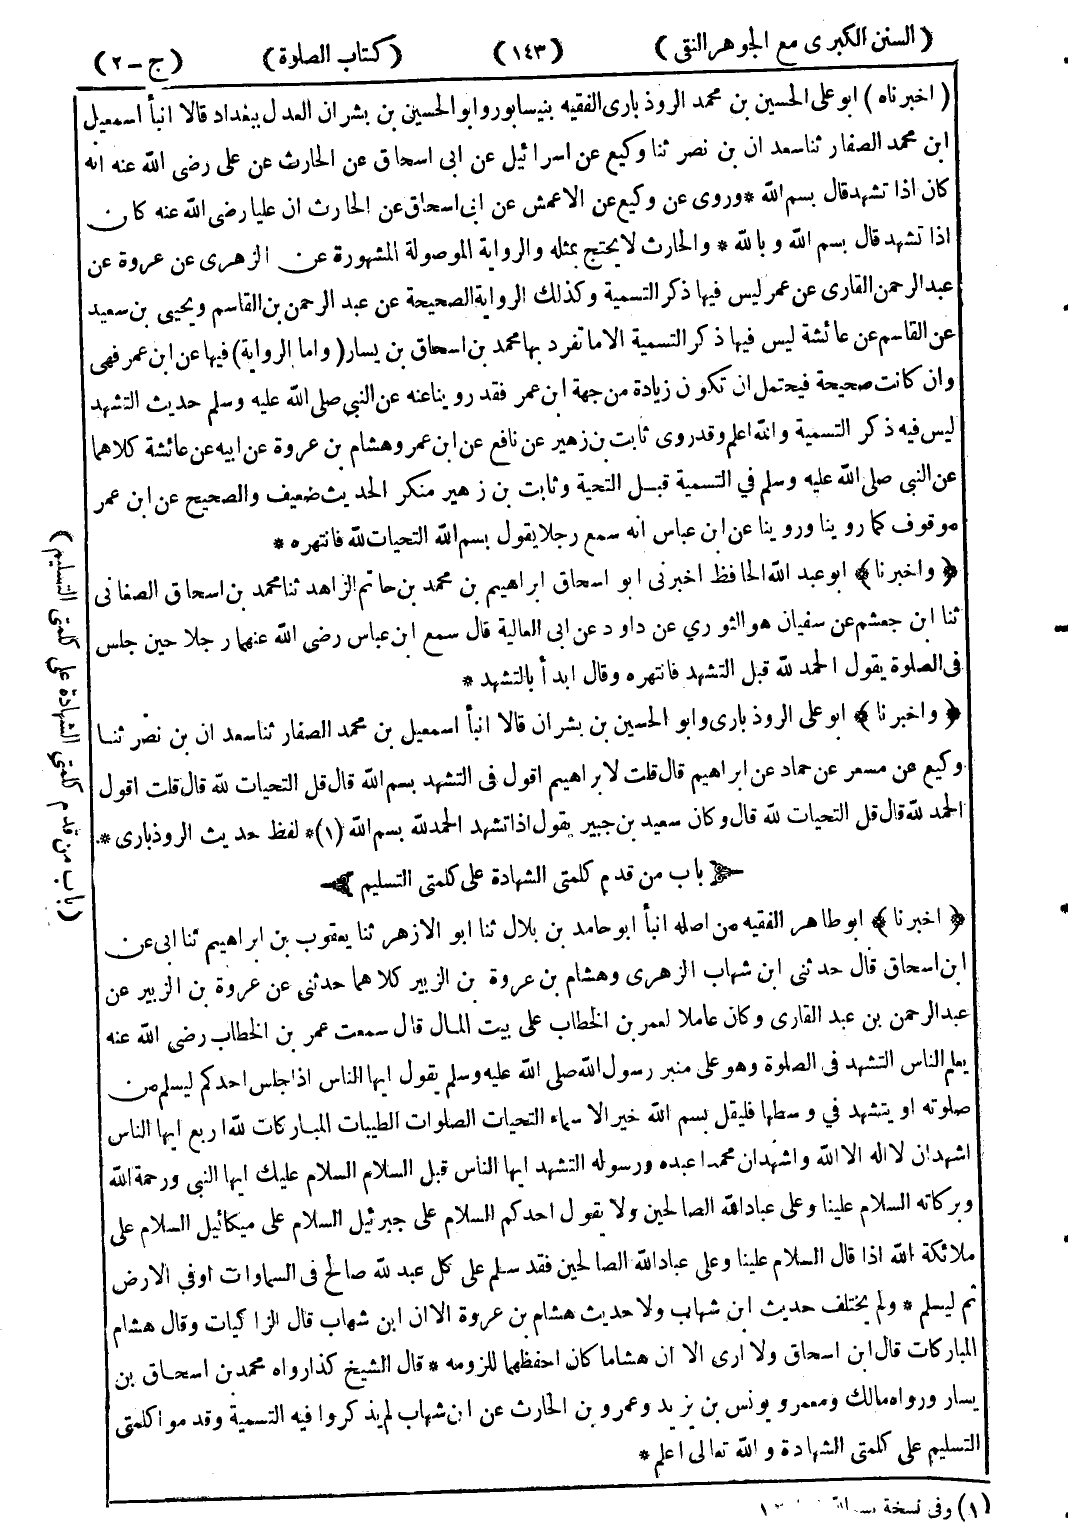 (السنن الكبرى مع الجوهر النقى) (١٤٣) (كتاب الصلوة) (ج - ٢)
(اخبرناه) ابو على الحسين بن محمد الروذبارى الفقيه بنيسابور وابو الحسين بن بشران العدل ببغداد قالا انبأ اسمعيل
ابن محمد الصفار ثنا سعدان بن نصر ثنا وكيع عن اسرائيل عن ابى اسحاق عن الحارث عن على رضى الله عنه انه
كان اذا تشهد قال بسم الله * وروى عن وكيع عن الاعمش عن ابى اسحاق عن الحارث ان عليا رضى الله عنه كان
اذا تشهد قال بسم الله وبالله * والحارث لا يحتج بمثله والرواية الموصولة المشهورة عن الزهرى عن عروة عن
عبد الرحمن القارى عن عمر ليس فيها ذكر التسمية وكذلك الرواية الصحيحة عن عبد الرحمن بن القاسم ويحيى بن سعيد
عن القاسم عن عائشة ليس فيها ذكر التسمية الا ما تفرد بها محمد بن اسحاق بن يسار (واما الرواية) فيها عن ابن عمر فهى
وان كانت صحيحة فيحتمل ان تكون زيادة من جهة ابن عمر فقد روينا عنه عن النبي صلى الله عليه وسلم حديث التشهد
ليس فيه ذكر التسمية والله اعلم وقد روى ثابت بن زهير عن نافع عن ابن عمر وهشام بن عروة عن ابيه عن عائشة كلاهما
عن النبى صلى الله عليه وسلم في التسمية قبل التحية وثابت بن زهير منكر الحديث ضعيف والصحيح عن ابن عمر
موقوف كما روينا وروينا عن ابن عباس انه سمع رجلا يقول بسم الله التحيات لله فانتهره *
﴿واخبرنا﴾ ابو عبد الله الحافظ اخبرنى ابو اسحاق ابراهيم بن محمد بن حاتم الزاهد ثنا محمد بن اسحاق الصغانى
ثنا ابن جعشم عن سفيان هو الثوري عن داود عن ابى العالية قال سمع ابن عباس رضى الله عنهما رجلا حين جلس
فى الصلوة يقول الحمد لله قبل التشهد فانتهره وقال ابدأ بالتشهد *
﴿واخبرنا﴾ ابو على الروذبارى وابو الحسين بن بشران قالا انبأ اسمعيل بن محمد الصفار ثنا سعدان بن نصر ثنا
وكيع عن مسعر عن حماد عن ابراهيم قال قلت لابراهيم اقول فى التشهد بسم الله قال قل التحيات لله قال قلت اقول
الحمد لله قال قل التحيات لله قال وكان سعيد بن جبير يقول اذا تشهد الحمد لله بسم الله (١)* لفظ حديث الروذبارى *
باب من قدم كلمتى الشهادة على كلمتى التسليم
﴿اخبرنا﴾ ابو طاهر الفقيه من اصله انبأ ابو حامد بن بلال ثنا ابو الازهر ثنا يعقوب بن ابراهيم ثنا ابى عن
ابن اسحاق قال حدثنى ابن شهاب الزهرى وهشام بن عروة بن الزبير كلاهما حدثنى عن عروة بن الزبير عن
عبد الرحمن بن عبد القارى وكان عاملا لعمر بن الخطاب على بيت المال قال سمعت عمر بن الخطاب رضى الله عنه
يعلم الناس التشهد فى الصلوة وهو على منبر رسول الله صلى الله عليه وسلم يقول ايها الناس اذا جلس احدكم ليسلم من
صلوته او يتشهد في وسطها فليقل بسم الله خير الاسماء التحيات الصلوات الطيبات المباركات لله اربع ايها الناس
اشهد ان لا اله الا الله واشهد ان محمدا عبده ورسوله التشهد ايها الناس قبل السلام السلام عليك ايها النبي ورحمة الله
وبركاته السلام علينا وعلى عباد الله الصالحين ولا يقول احدكم السلام على جبرئيل السلام على ميكائيل السلام على
ملائكة الله اذا قال السلام علينا وعلى عباد الله الصالحين فقد سلم على كل عبد لله صالح فى السماوات او في الارض
ثم ليسلم * ولم يختلف حديث ابن شهاب ولا حديث هشام بن عروة الا ان ابن شهاب قال الزاكيات وقال هشام
المباركات قال ابن اسحاق ولا ارى الا ان هشاما كان احفظهما للزومه * قال الشيخ كذا رواه محمد بن اسحاق بن
يسار ورواه مالك ومعمر ويونس بن يزيد وعمرو بن الحارث عن ابن شهاب لم يذكروا فيه التسمية وقدموا كلمتى
التسليم على كلمتى الشهادة والله تعالى اعلم *
(١) وفى نسخة
(باب من قدم كلمتى الشهادة على كلمتى التسليم)